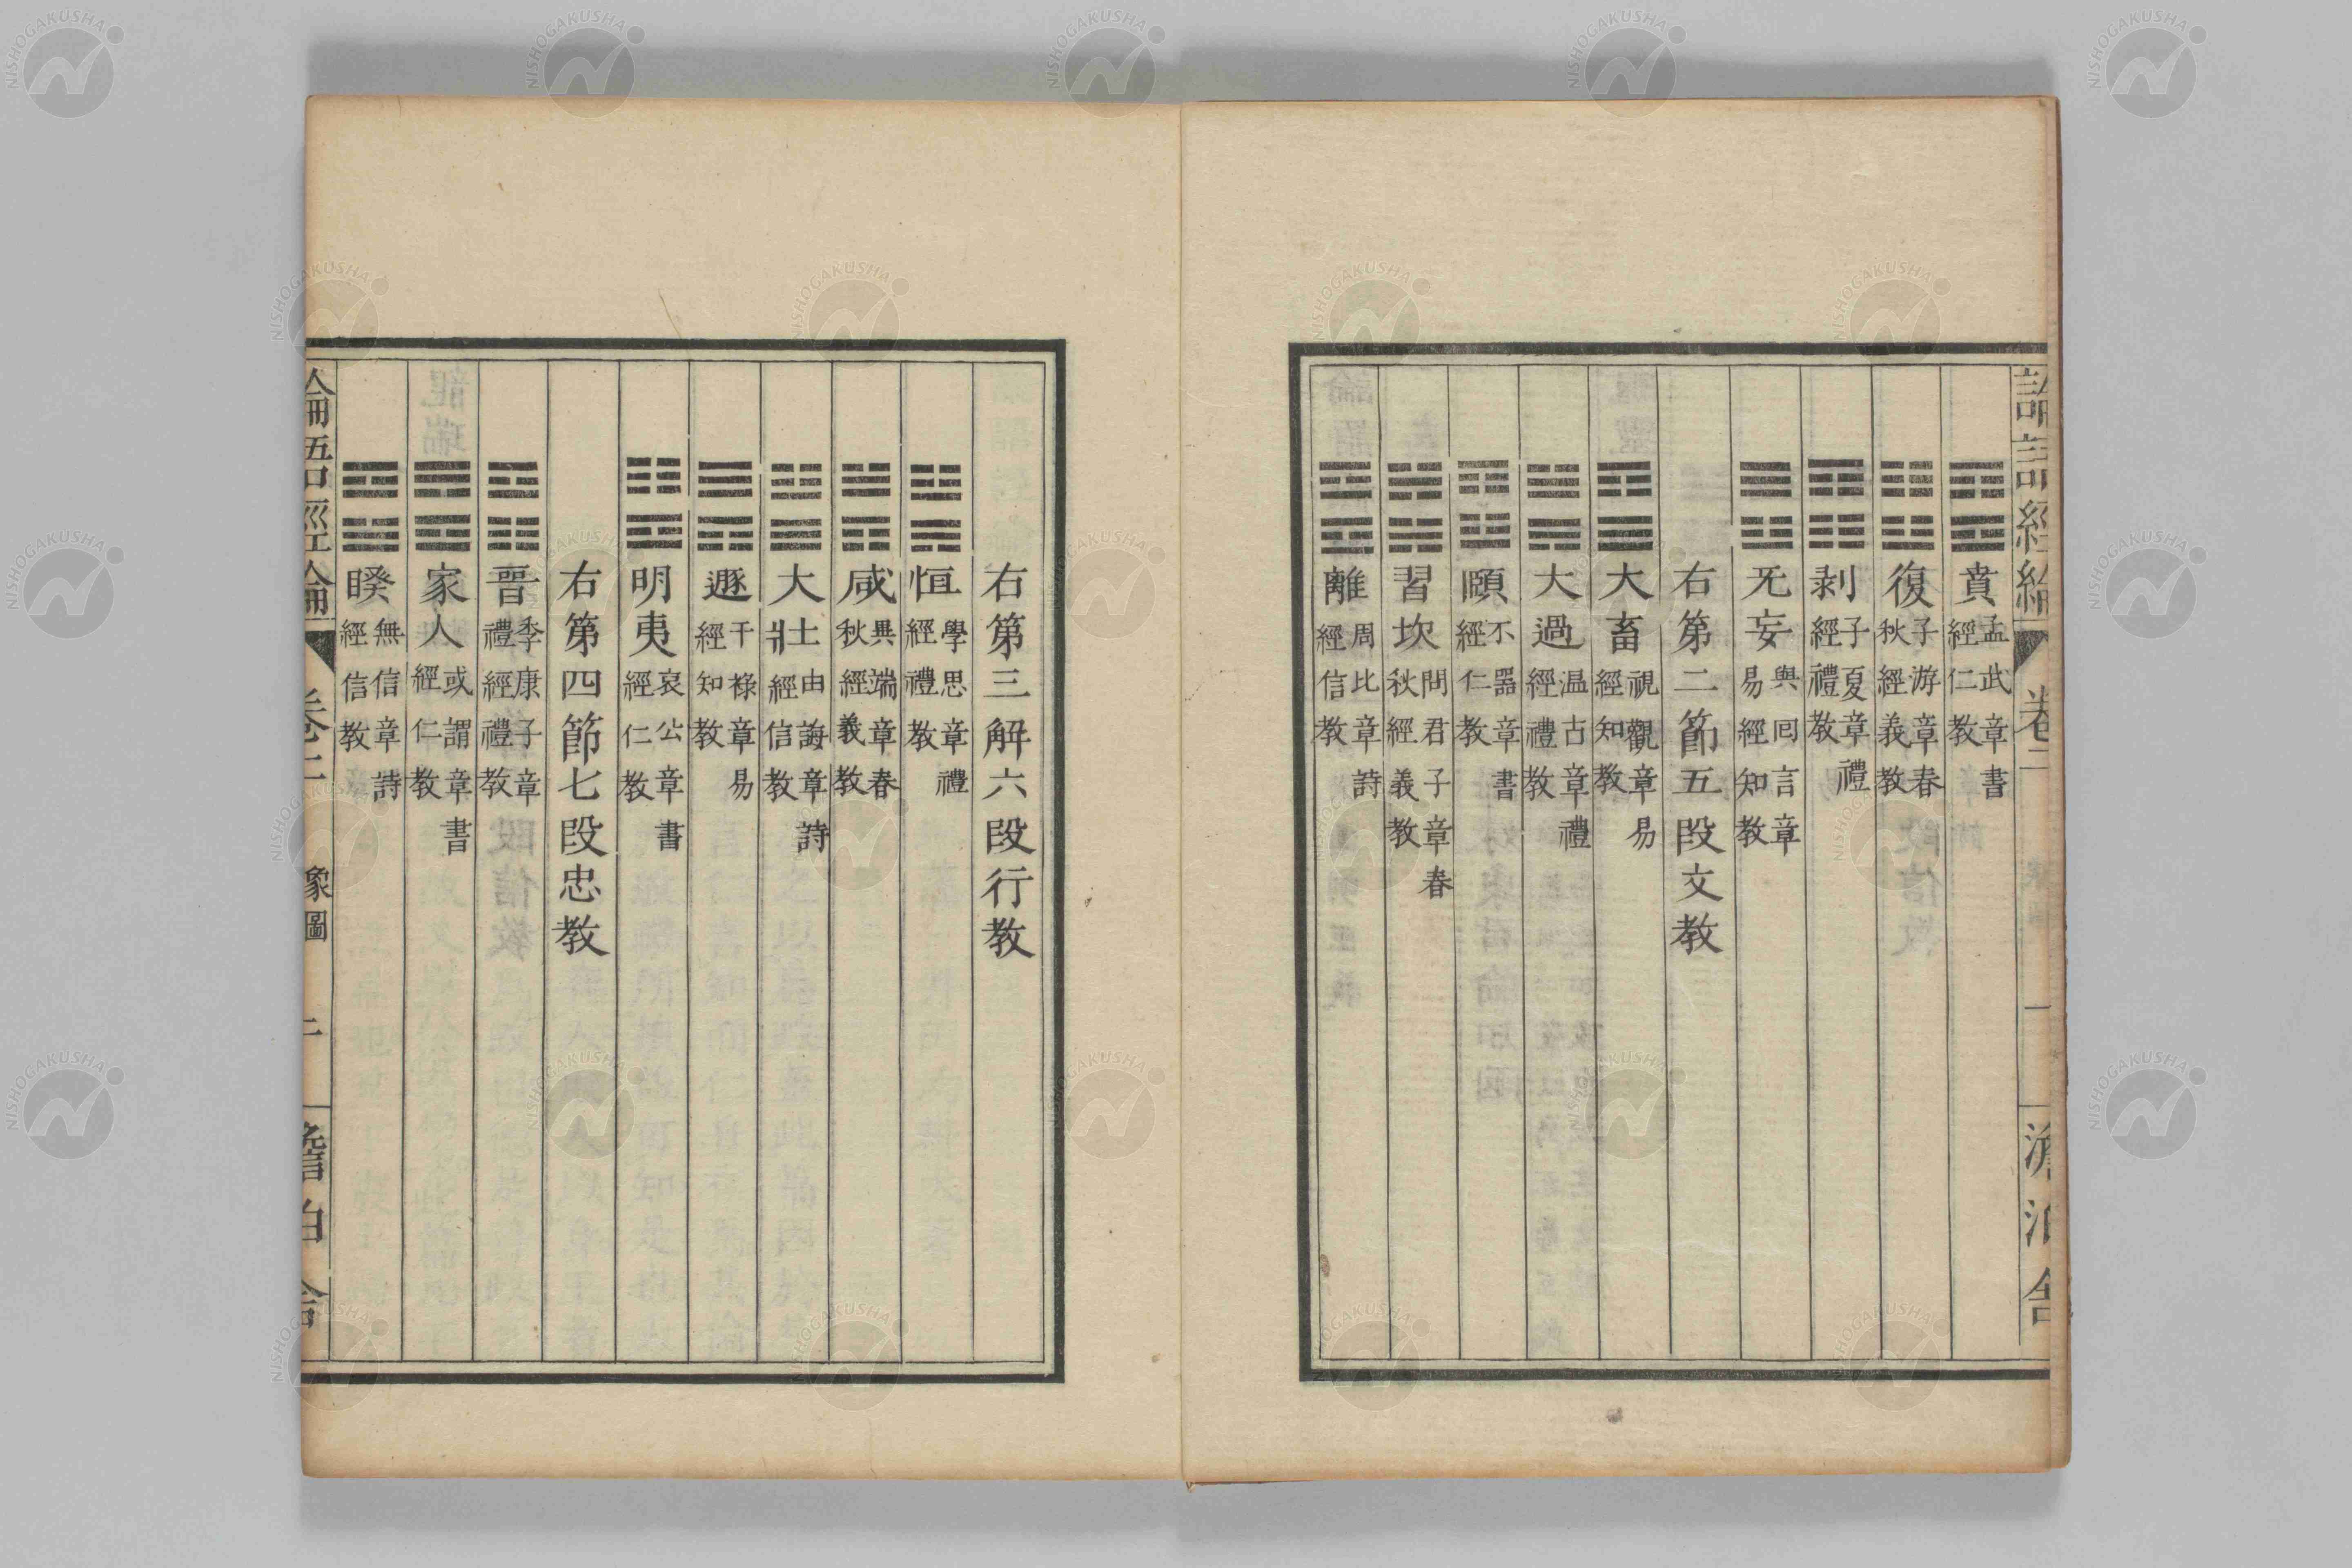 論語經綸 卷二 一 澹泊舍
賁 孟武章書經仁教
復 子游章春秋經義教
剥 子夏章禮經禮教
无妄 與囘言章易經知教
右第二節五段文教
大畜 視觀章易經知教
大過 温古章禮經禮教
頤 不器章書經仁教
習坎 問君子章春秋經義教
離 周比章詩經信教
右第三解六段行教
恒 學思章禮經禮教
咸 異端章春秋經義教
大壯 由誨章詩經信教
遯 干祿章易經知教
明夷 哀公章書經仁教
右第四節七段忠教
晉 季康子章禮經禮教
家人 或謂章書經仁教
睽 無信章詩經信教
論語經綸 卷二 象圖 二 澹泊舍
NISHOGAKUSHA